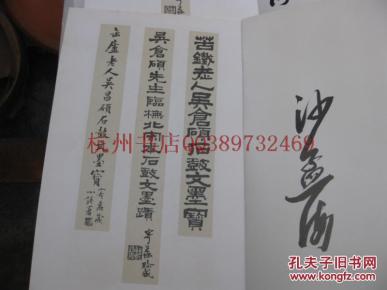 苦鐵老人吳倉碩石鼓文墨寶
吳倉碩先生臨橅北宋本石鼓文墨蹟
缶廬老人吳昌碩石鼓文墨寶
沙孟海
杭州书店QQ389732469
孔夫子旧书网